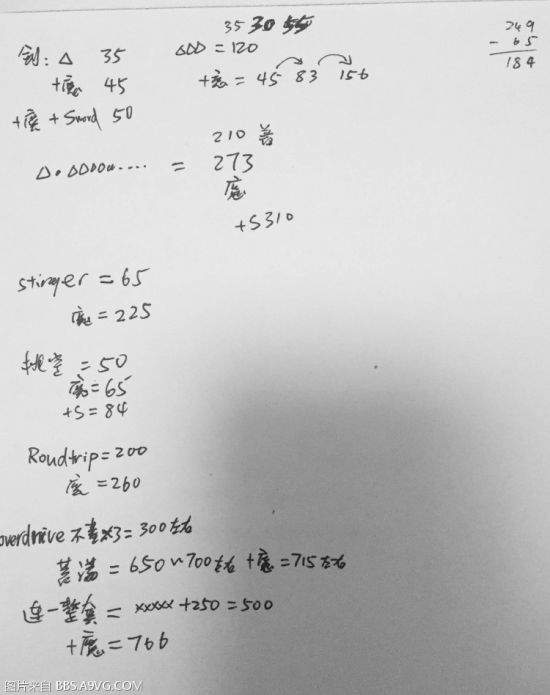 35 30 55
剑: △ 35 △△△ = 120
+魔 45 +魔 = 45 83 156
+魔 + Sword 50
249
- 65
184
210 普
= 273
魔
+S310
stinger = 65
魔 = 225
挑空 = 50
魔 = 65
+S = 84
Roudtrip = 200
魔 = 260
overdrive 不蓄 x3 = 300左右
蓄满 = 650~700左右 +魔 = 715左右
连一整套 = xxxxx + 250 = 500
+魔 = 766
图片来自 BBS.A9VG.COM